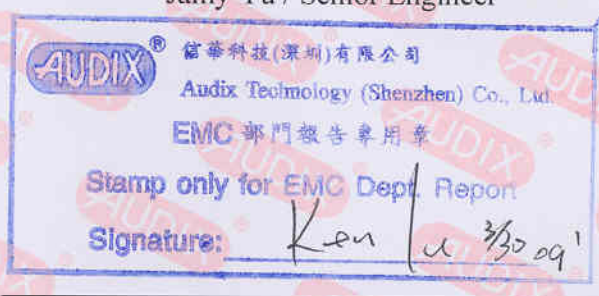 / Senior Engineer
AUDIX®
信華科技(深圳)有限公司
Audix Technology (Shenzhen) Co., Ltd.
EMC 部門報告專用章
Stamp only for EMC Dept. Report
Signature: Ken Lu 3/30 09'